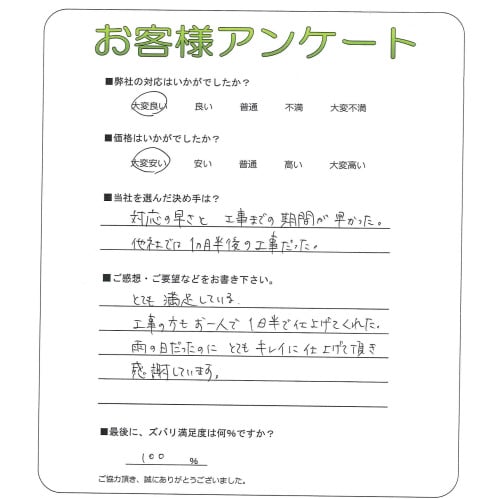 お客様アンケート
■弊社の対応はいかがでしたか？
大変良い 良い 普通 不満 大変不満
■価格はいかがでしたか？
大変安い 安い 普通 高い 大変高い
■当社を選んだ決め手は？
対応の早さと 工事までの期間が早かった。
他社では1カ月半後の工事だった。
■ご感想・ご要望などをお書き下さい。
とても 満足している.
工事の方もお一人で 1日半で仕上げてくれた.
雨の日だったのに とてもキレイに仕上げて頂き
感謝しています。
■最後に、ズバリ満足度は何%ですか？
100 %
ご協力頂き、誠にありがとうございました。